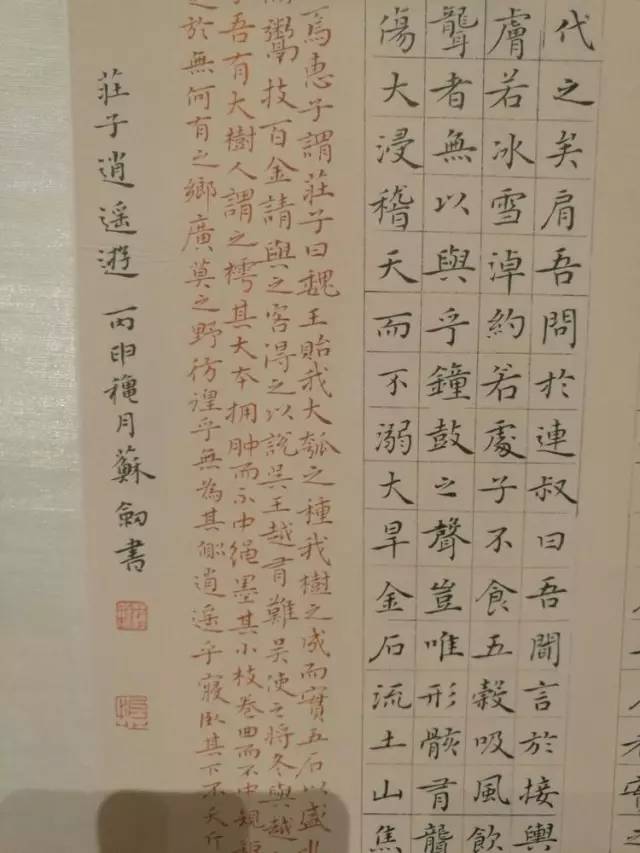 代之矣肩吾問於連叔曰吾聞言於接輿
膚若冰雪淖約若處子不食五穀吸風飲
聾者無以與乎鐘鼓之聲豈唯形骸有聾
傷大浸稽天而不溺大旱金石流土山焦
焉惠子謂莊子曰魏王貽我大瓠之種我樹之成而實五石以盛水
鬻技百金請與之客得之以說吳王越有難吳使之將冬與越
子吾有大樹人謂之樗其大本拥肿而不中绳墨其小枝卷曲而不中規
之於無何有之鄉廣莫之野彷徨乎無為其側逍遥乎寢臥其下不夭斤
莊子逍遥遊 丙申穐月蘇劍書